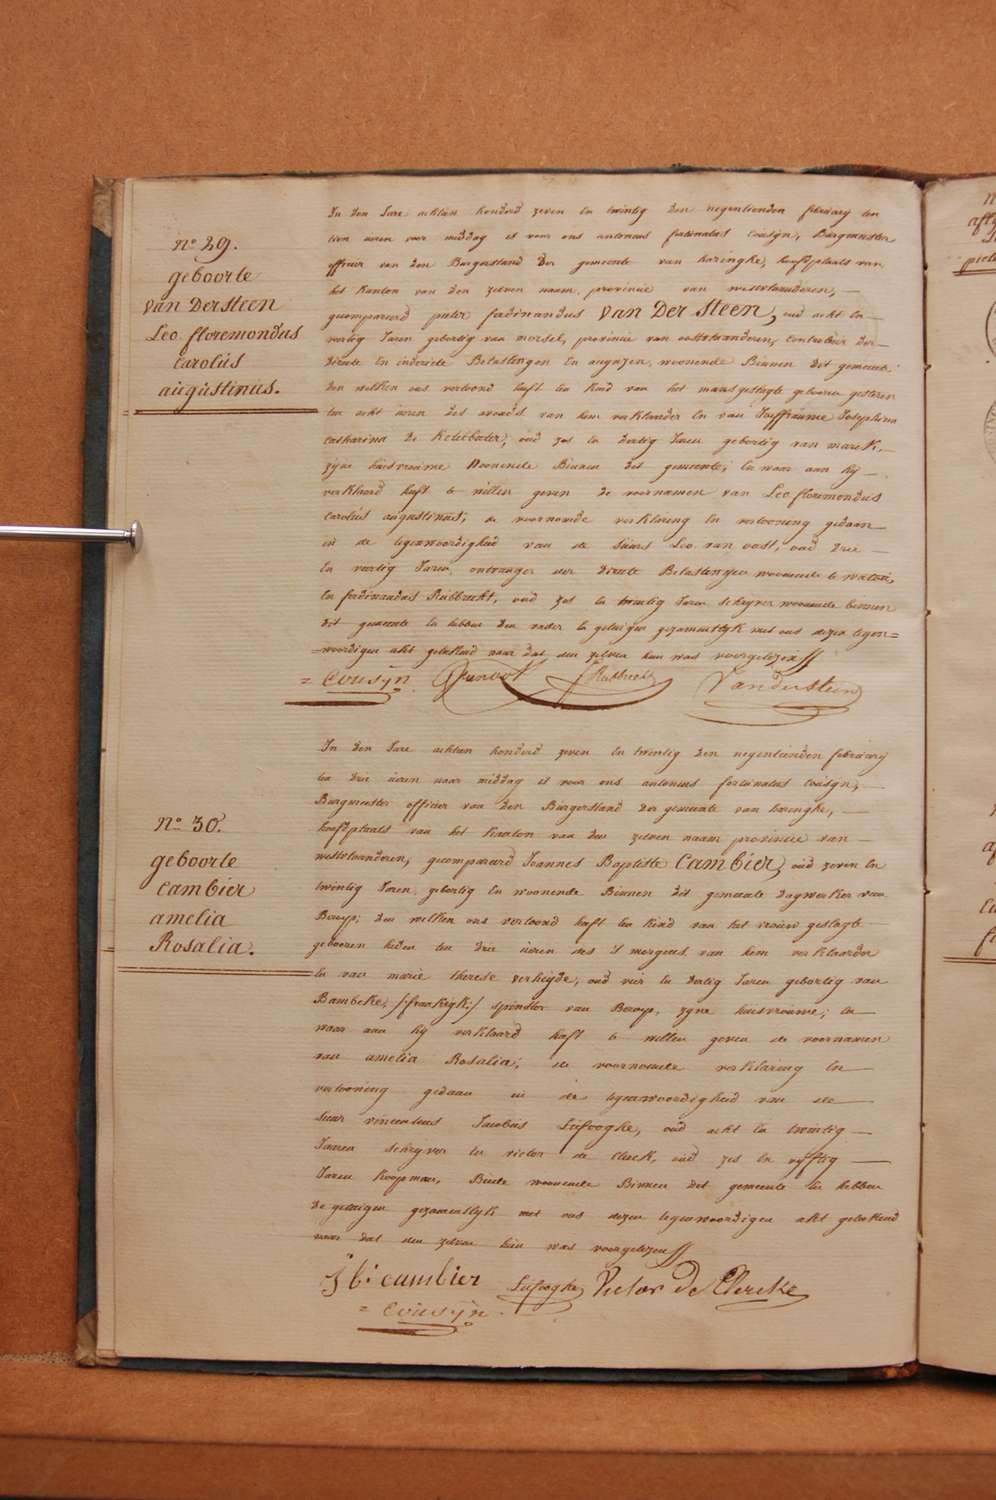 n° 29.
geboorte
van Dersteen
Leo floremondus
Carolus
augustinus.
In den Jare achtien honderd zeven en twintig den negentienden februarij ten
tien uren voor middag is voor ons antonius fortunatus Cousijn, Burgmeester
officier van den Burgerstand der gemeente van haringhe, hoofdplaats van
het kanton van den zelven naam, provincie van westvlaanderen,
gecompareerd pieter ferdinandus van Der Steen, oud acht en
veertig Jaren gebortig van moorsel, provincie van oostvlaanderen, Controleur der
directe en indirecte Belastingen en accynzen, woonende Binnen dit gemeente,
den welken ons vertoond heeft een kind van het mansgeslagte geboren gisteren
ten acht uren des avonds van hem verklaarder en van Joufvrauwe Josephina
Catharina De , oud zes en dertig Jaren gebortig van
zijne huisvrouwe Woonende Binnen dit gemeente; en waar aan hij
verklaard heeft te willen geven de voornamen van Leo floremondus
Carolus augustinus; de voornoemde verklaring en vertooning gedaan
in de tegenwoordigheid van de Siurs Leo van oost, oud drie
en veertig Jaren, ontvanger der directe Belastingen woonende te watou,
en ferdinandus Rubbrecht, oud zes en twintig Jaren schryver woonende binnen
dit gemeente en hebben den vader en getuigen gezamentlyk met ons dezen tegen=
=woordigen akt geteekend naar dat den zelven hun was voorgelezen
= Cousyn Vanoost Rubbrecht Vandersteen
n° 30.
geboorte
Cambier
amelia
Rosalia.
In den Jare achtien honderd zeven en twintig den negentienden februarij
ten drie uren naar middag is voor ons antonius fortunatus Cousijn,
Burgmeester officier van den Burgerstand der gemeente van haringhe,
hoofdplaats van het kanton van den zelven naam provincie van
westvlaanderen, gecompareerd Joannes Baptiste Cambier, oud zeven en
twintig Jaren, gebortig en woonende Binnen dit gemeente dagwerker van
Beroep; den welken ons vertoond heeft een kind van het vrouw geslagte
geboren heden ten drie uren des 's morgens van hem verklaarder
en van marie therese verheyde, oud vier en dertig Jaren gebortig van
Bambeke, /:frankryk:/ spindster van Beroep, zyne huisvrouwe; en
waar aan hij verklaard heeft te willen geven de voornamen
van amelia Rosalia; de voornoemde verklaring en
vertooning gedaan in de tegenwoordigheid van de
Siur vincentius Jacobus Lefooghe, oud acht en twintig
Jaren schryver en victor de Clerck, oud zes en vyftig
Jaren koopman, Beide woonende Binnen dit gemeente en hebben
de getuigen gezamentlyk met ons dezen tegenwoordigen akt geteekend
naar dat den zelven hun was voorgelezen
J b: cambier Lefooghe Victor De Clercke
= Cousyn